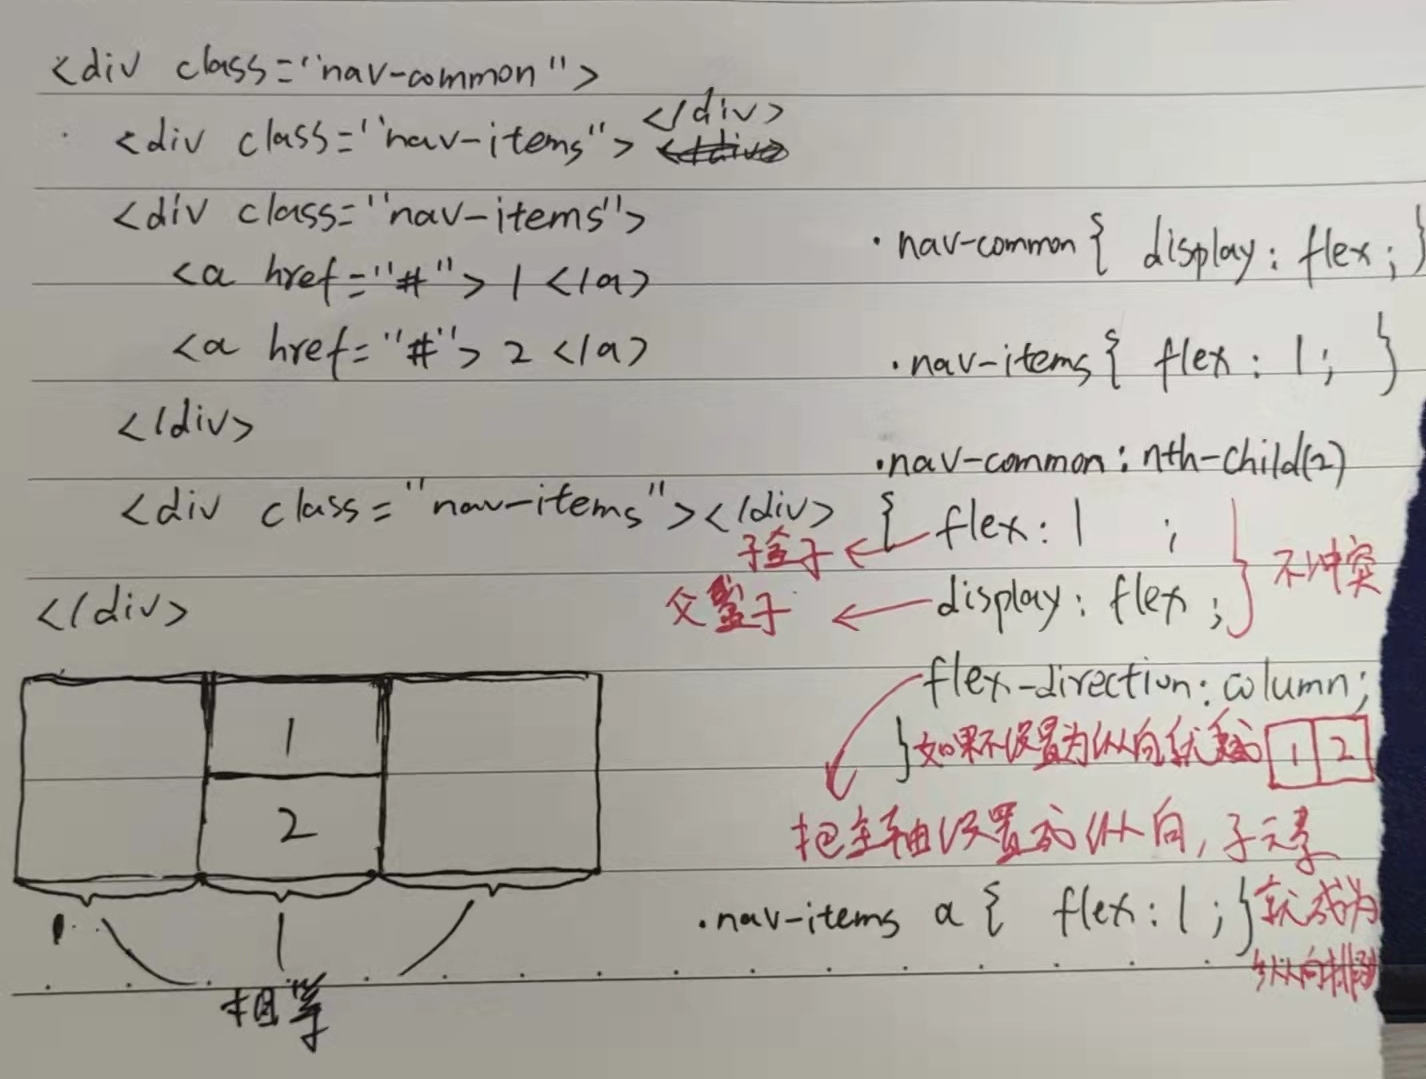 <div class="nav-common">
<div class="nav-items"> </div>
<div class="nav-items">
<a href="#"> 1 </a>
<a href="#"> 2 </a>
</div>
<div class="nav-items"></div>
</div>
1
2
相等
.nav-common{ display: flex; }
.nav-items{ flex: 1; }
.nav-common:nth-child(2)
{ flex: 1 ;
子盒子
display: flex ;
父盒子
不冲突
flex-direction: column;
} 如果不设置为纵向就变成 1 2
把主轴设置成纵向,子元素
就成为
纵向排列
.nav-items a { flex: 1; }